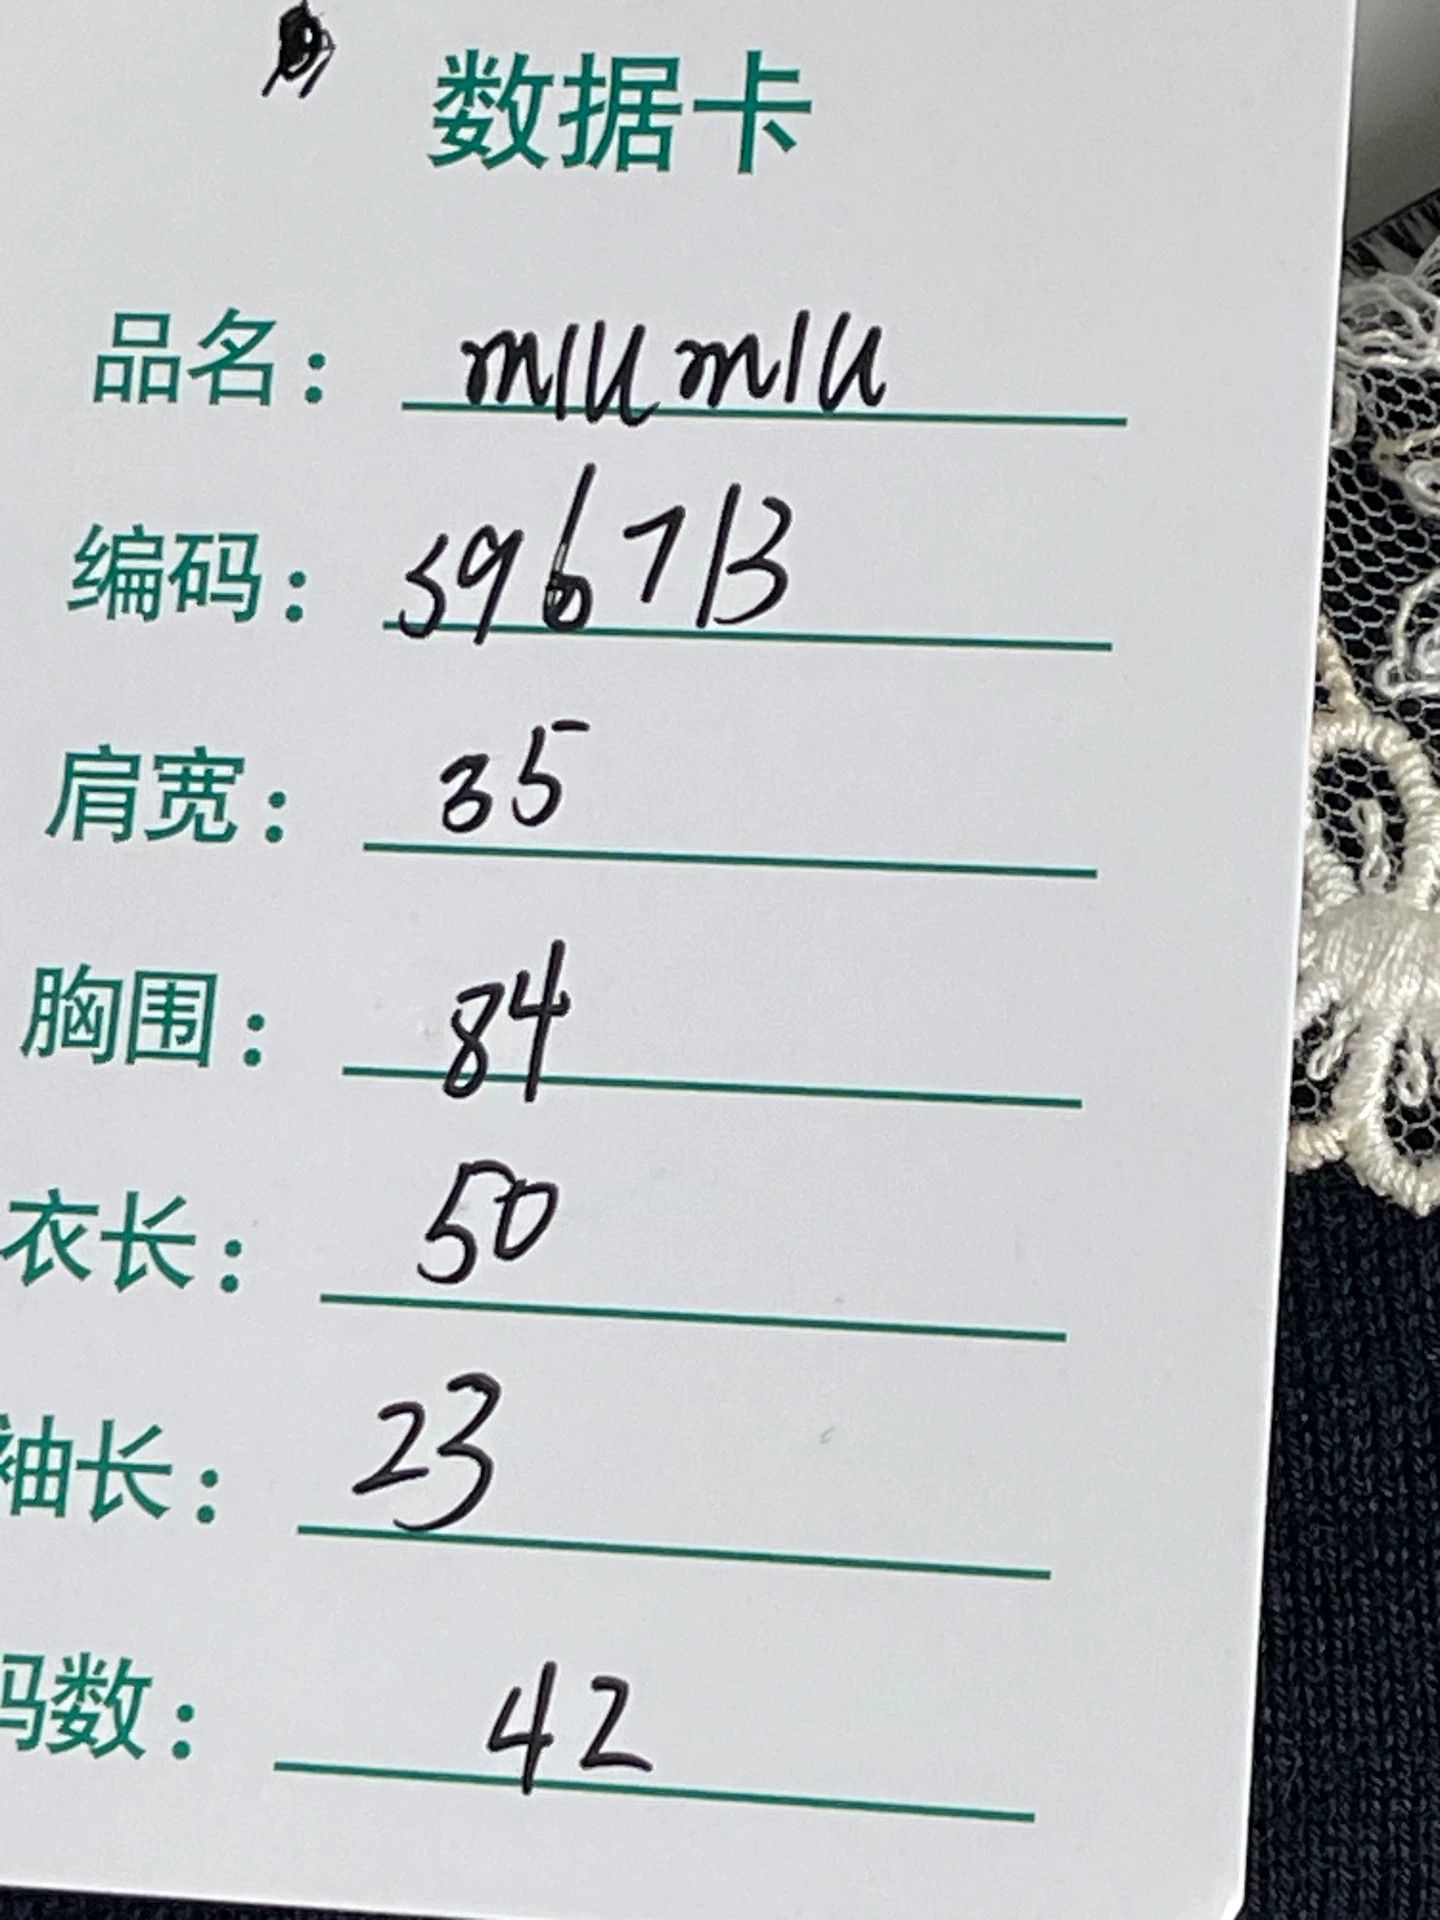 数据卡
品名：miumiu
编码：5967B
肩宽：35
胸围：84
衣长：50
袖长：23
码数：42